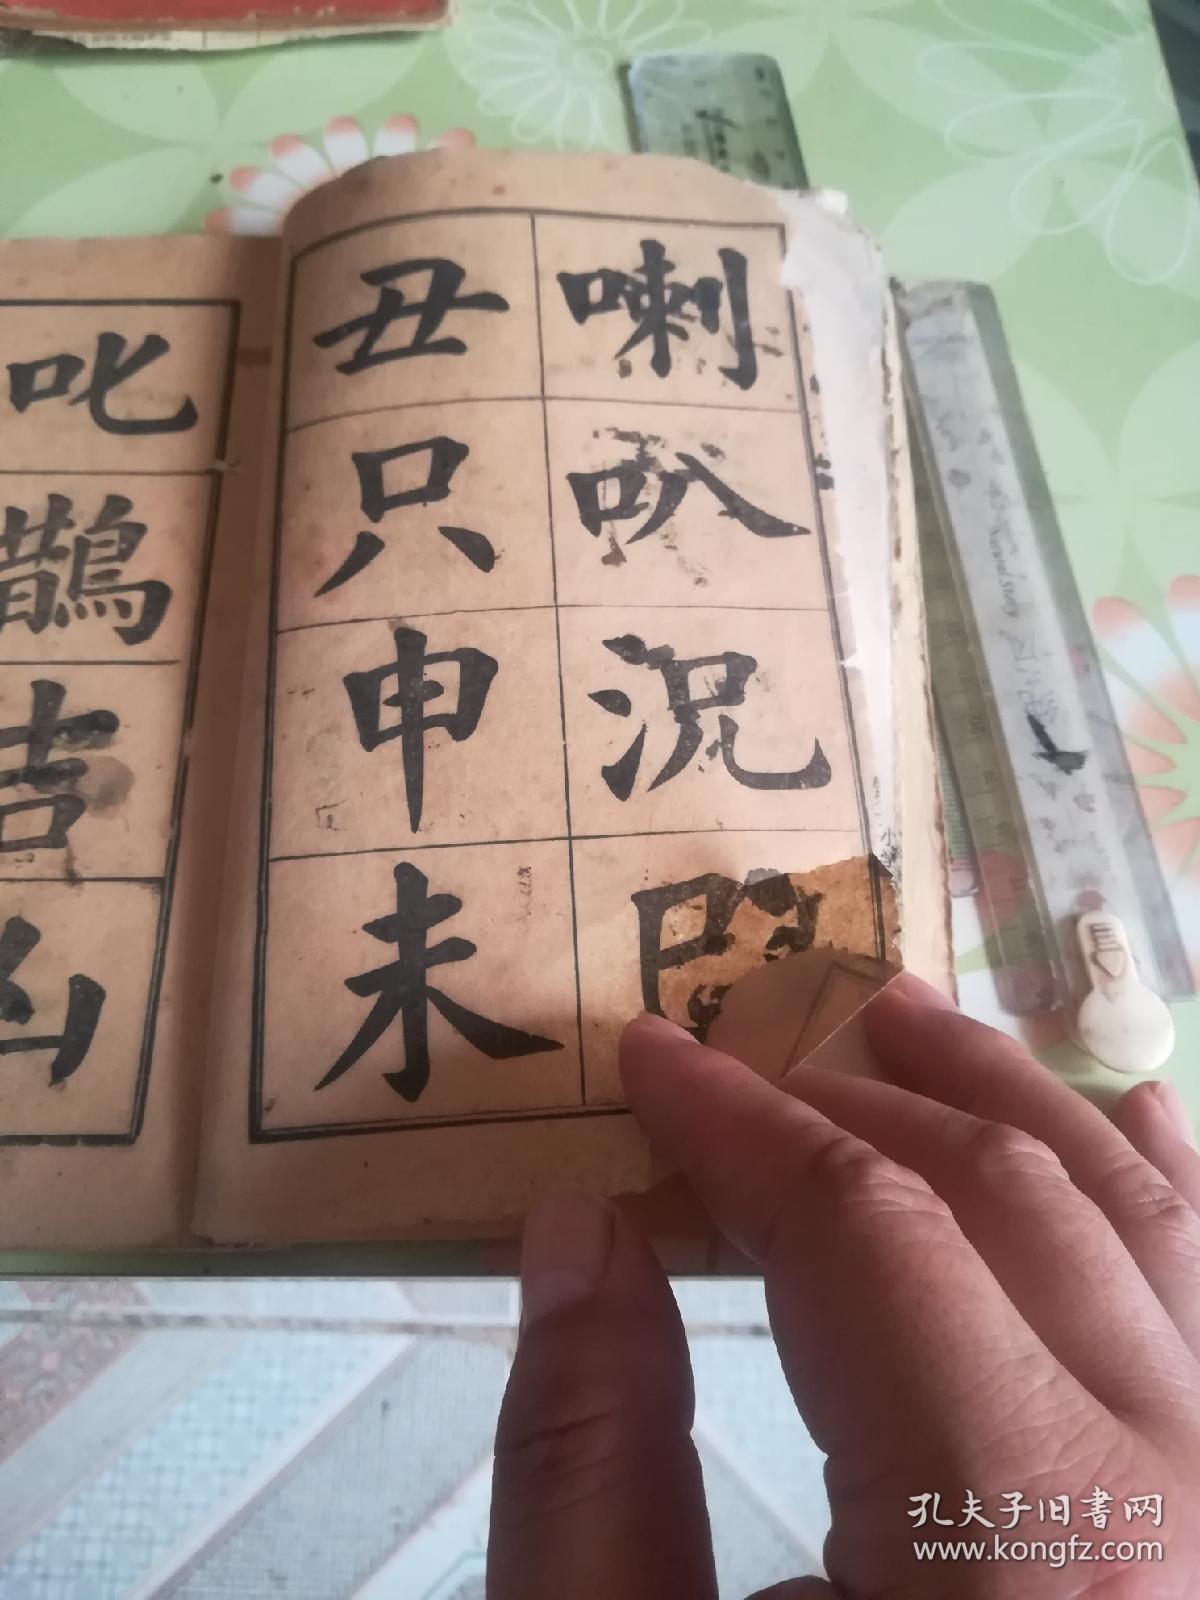 喇叭況
丑只申未
叱鵲吉凶
孔夫子旧書网
www.kongfz.com